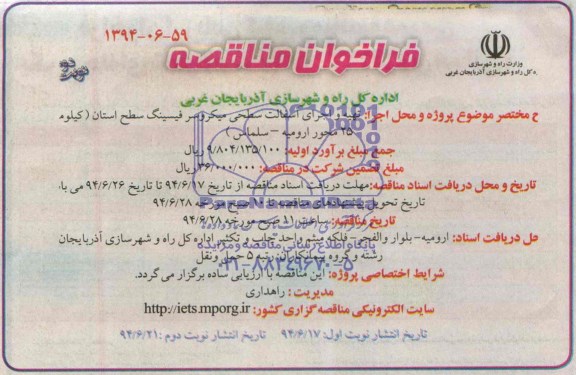 فراخوان مناقصه
۱۳۹۴-۰۶-۵۹
نوبت دوم
وزارت راه و شهرسازی
ه کل راه و شهرسازی آذربایجان غربی
اداره کل راه و شهرسازی آذربایجان غربی
ح مختصر موضوع پروژه و محل اجرا: تهیه و اجرای آسفالت سطحی میکروسرفیسینگ سطح استان (کیلوم
۲۵ محور ارومیه – سلماس)
جمع مبلغ برآورد اولیه: ۹/۸۰۴/۱۳۵/۱۰۰ ریال
مبلغ تضمین شرکت در مناقصه: ۳۶/۰۰۰/۰۰۰ ریال
تاریخ و محل دریافت اسناد مناقصه: مهلت دریافت اسناد مناقصه از تاریخ ۹۴/۶/۱۷ تا تاریخ ۹۴/۶/۲۶ می با،
تاریخ تحویل پیشنهادهای مناقصه تا صبح مورخه ۹۴/۶/۲۸
تاریخ مناقصه: ساعت ۱۱ صبح مورخه ۹۴/۶/۲۸
حل دریافت اسناد: ارومیه- بلوار والفجر- فلکه میثم واحد چاپ و تکثیر اداره کل راه و شهرسازی آذربایجان
رشته و گروه پیمانکاران: رتبه ۵ حمل ونقل
شرایط اختصاصی پروژه: این مناقصه با ارزیابی ساده برگزار می گردد.
مدیریت : راهداری
سایت الکترونیکی مناقصه گزاری کشور: http://iets.mporg.ir
تاریخ انتشار نوبت اول: ۹۴/۶/۱۷ تاریخ انتشار نوبت دوم :۹۴/۶/۲۱
پایگاه اطلاع رسانی مناقصه و مزایده
۰۲۱-۸۸۳۴۹۶۷۰-۵